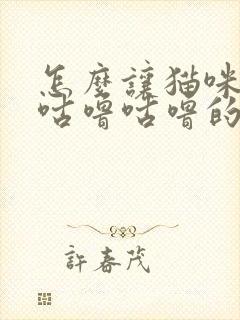 怎麼讓猫咪
咕嚕咕嚕的
許春茂